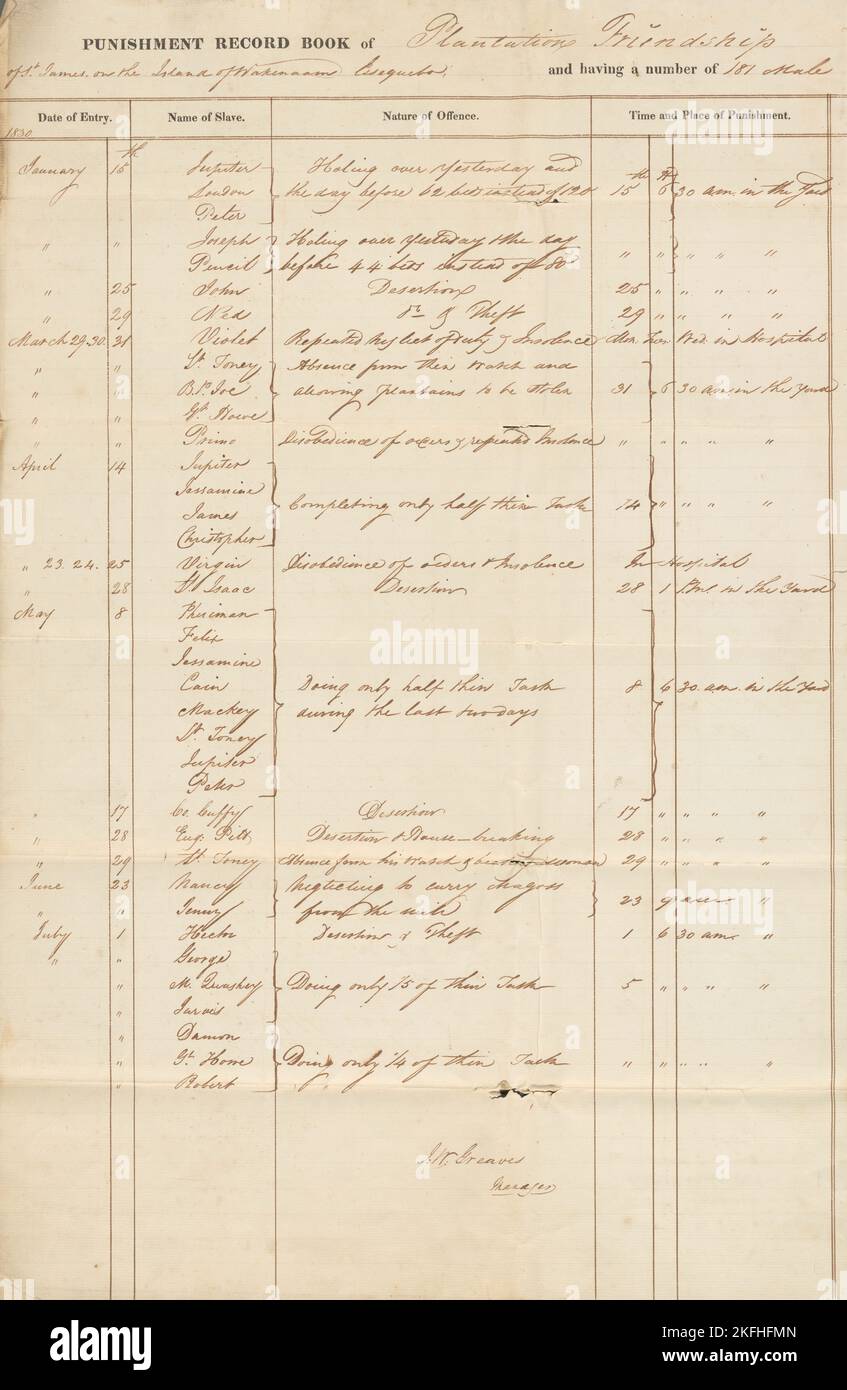 PUNISHMENT RECORD BOOK of Plantation Friendship
of St. James on the Island of Wakenaam Essequebo and having a number of 181 Male
Date of Entry. Name of Slave. Nature of Offence. Time and Place of Punishment.
1830
January 15th Jupiter Holing over Yesterday and
London the day before 62 beds instead of 120 15th 6 30 am. in the Yard
Peter
" " Joseph Holing over Yesterday & the day
Pencil before 44 beds instead of 80 " " " " "
" 25 John Desertion 25 " " " "
" 29 Ned Do & Theft 29 " " " "
March 29.30. 31 Violet Repeated neglect of duty & Insolence Mon. Tues. Wed. in Hospital
" " Toney Absence from their watch and
" " Joe allowing plantains to be stolen 31 6 30 am in the Yard
" " Gt. Howe
" " Primo Disobedience of orders & repeated Insolence " " " " "
April 14 Jupiter
Jessamine
James Completing only half their Task 14 " " " "
Christopher
" 23. 24. 25 Virgin Disobedience of orders & Insolence In Hospital
" 28 Isaac Desertion 28 1 P.M. in the Yard
May 8 Felix
Jessamine
Cain Doing only half their Task 8 6 30. am. in the Yard
Mackey during the last two days
Toney
Jupiter
Peter
" 17 Co. Cuffy Desertion 17 " " " "
" 28 Eug. Pitt Desertion & House-breaking 28 " " " "
" 29 Toney Absence from his watch & beating woman 29 " " " "
June 23 Nancy Neglecting to carry
" " Jenny from the 23 9 "
July 1 Hector Desertion & Theft 1 6 30 am. "
" " George
" M. Quashey Doing only 1/5 of their Task 5 " " " "
" Jarvis
" Damon
" Gt. Howe Doing only 1/4 of their Task " " " " "
" Robert
J. W. Greaves
Manager
alamy
a
Image ID: 2KFHFMN
www.alamy.com